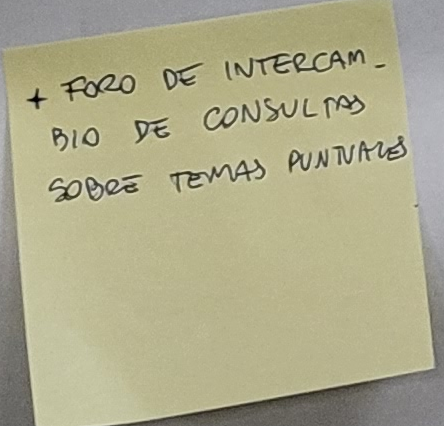 + FORO DE INTERCAM-
BIO DE CONSULTAS
SOBRE TEMAS PUNTUALES